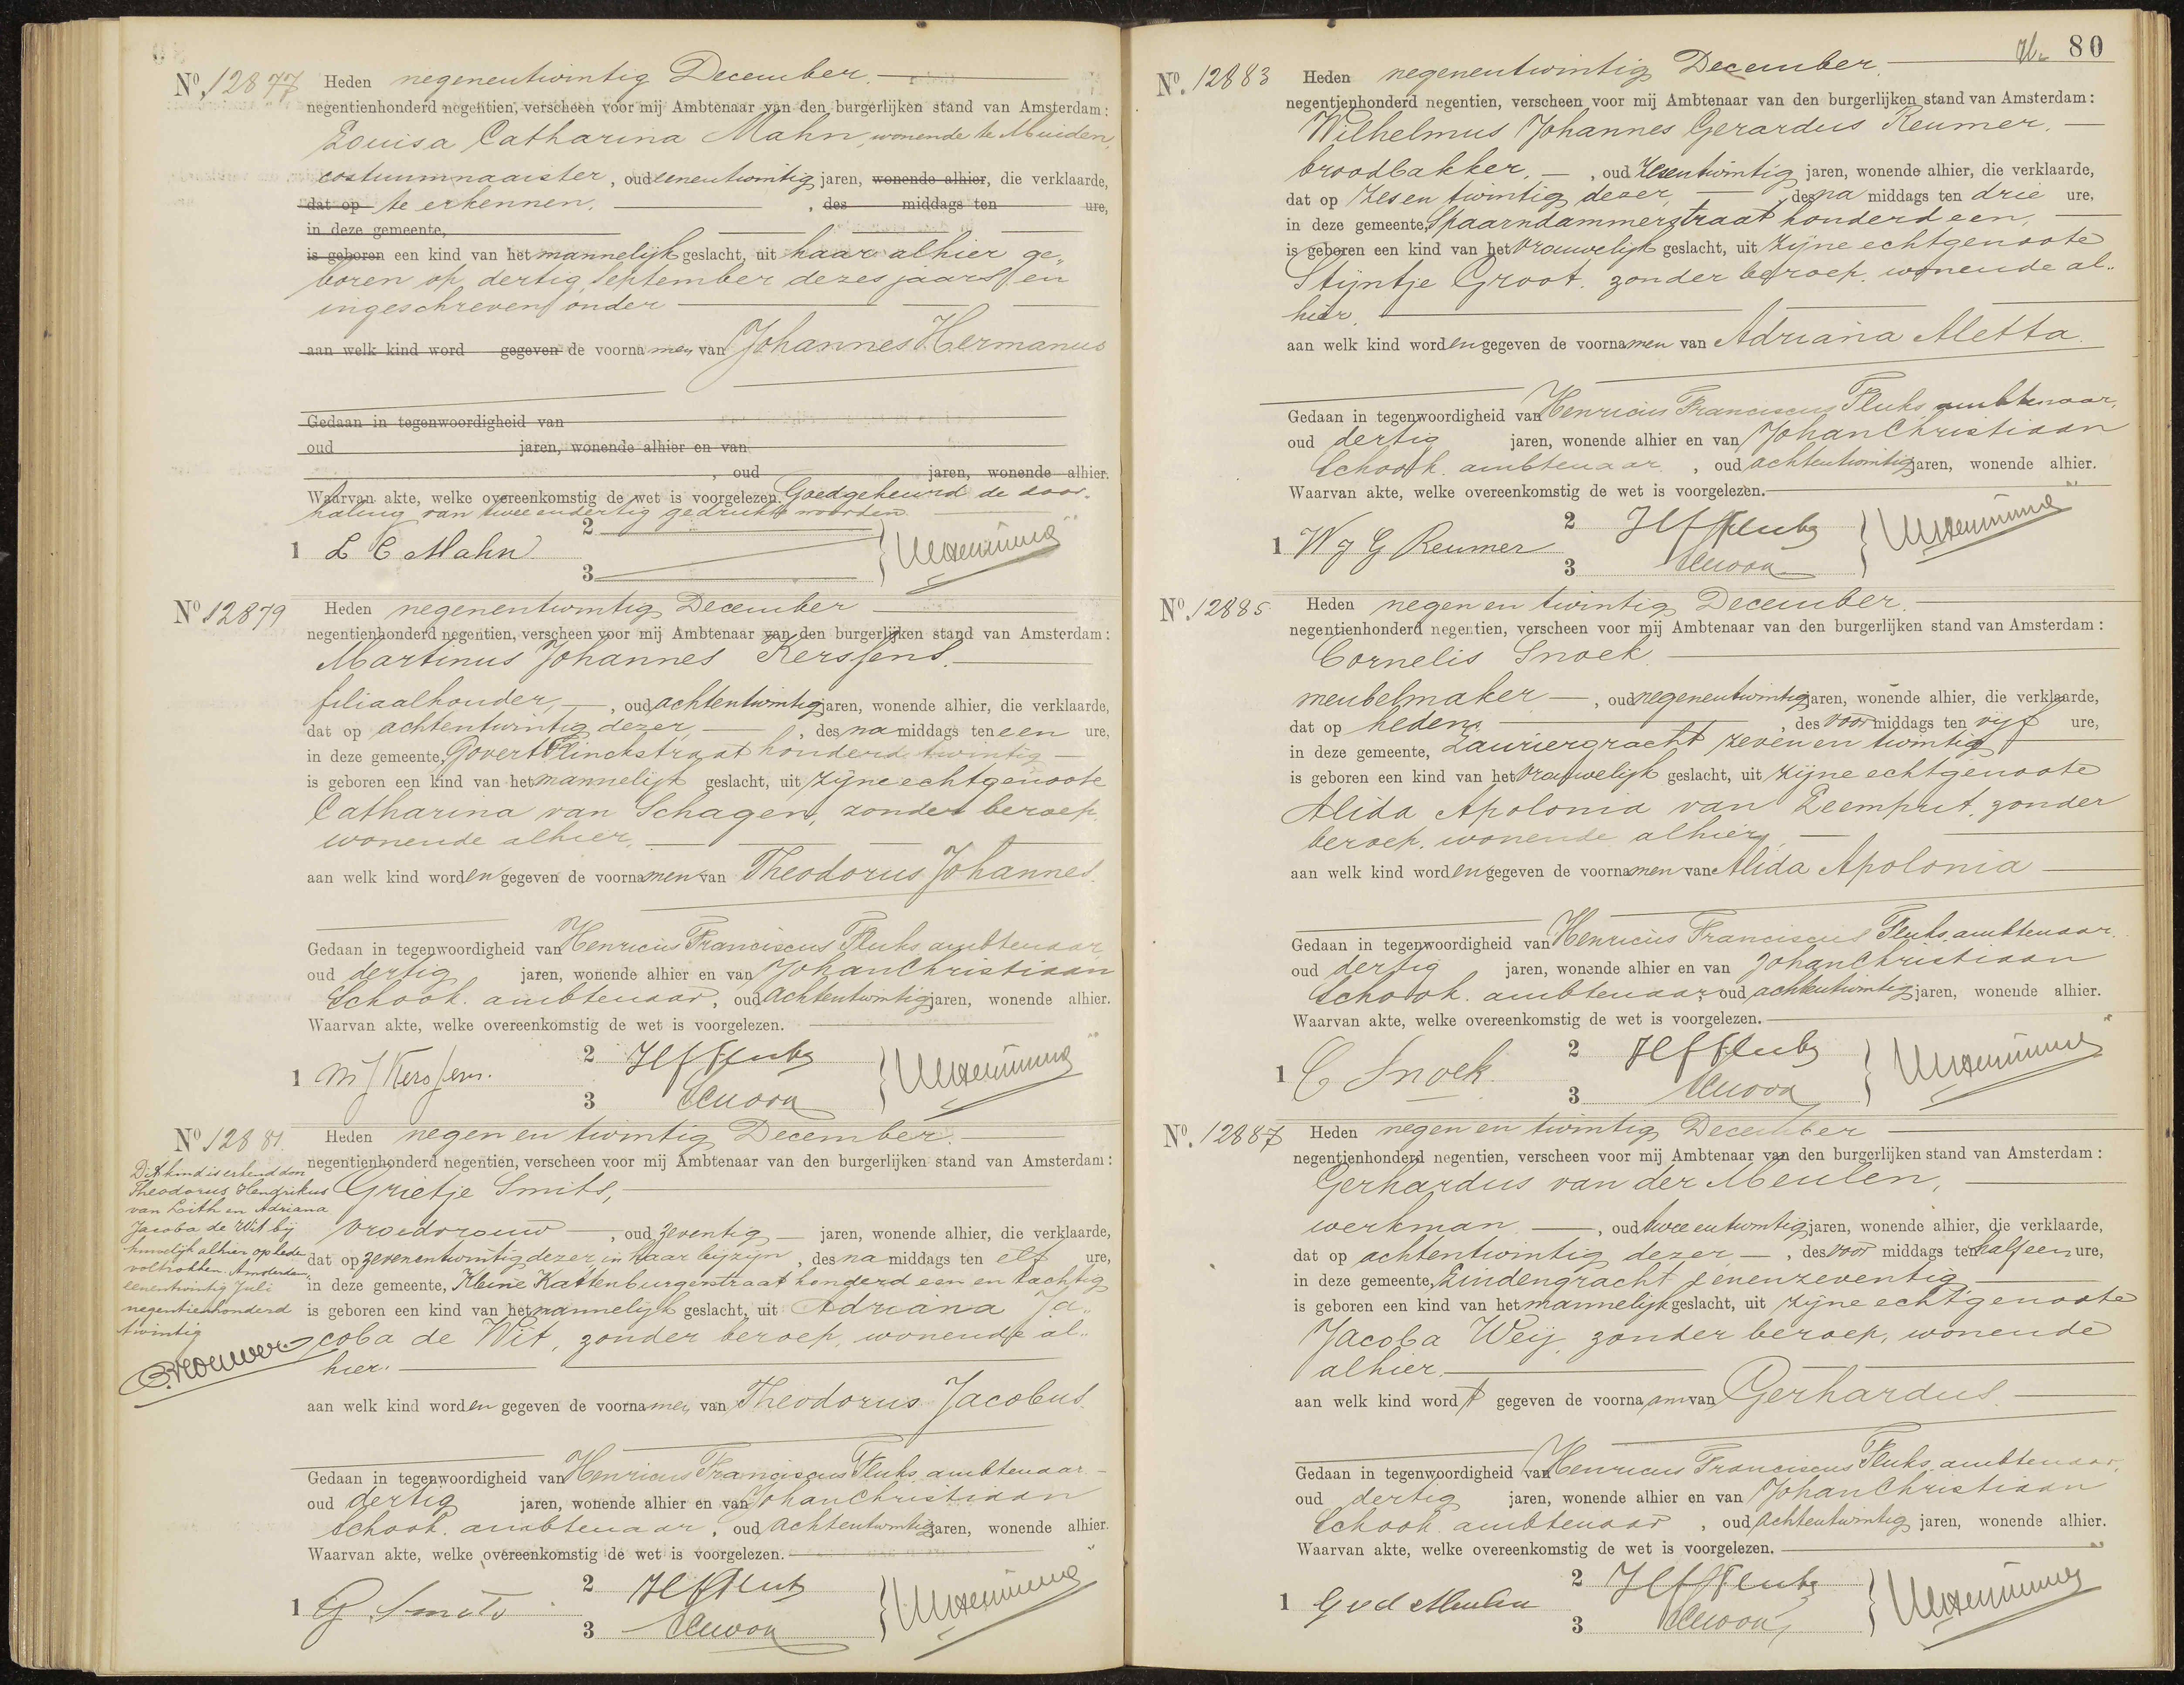 No. 12877 Heden negenentwintig December.
negentienhonderd negentien, verscheen voor mij Ambtenaar van den burgerlijken stand van Amsterdam:
Louisa Catharina Mahn, wonende te Muiden,
costuumnaaister, oud eenentwintig jaren, wonende alhier, die verklaarde,
dat op te erkennen. , des middags ten ure,
in deze gemeente,
is geboren een kind van het mannelijk geslacht, uit haar alhier ge„
boren op dertig September dezes jaars en
ingeschreven onder
aan welk kind word gegeven de voornamen van Johannes Hermanus
Gedaan in tegenwoordigheid van
oud jaren, wonende alhier en van
, oud jaren, wonende alhier.
Waarvan akte, welke overeenkomstig de wet is voorgelezen. Goedgekeurd de door„
haling van twee endertig gedrukte woorden.
1 L C Mahn 2
3
No 12879 Heden negenentwintig December
negentienhonderd negentien, verscheen voor mij Ambtenaar van den burgerlijken stand van Amsterdam:
Martinus Johannes Kerssens.
filiaalhouder, , oud achtentwintig jaren, wonende alhier, die verklaarde,
dat op achtentwintig dezer, , des na middags ten een ure,
in deze gemeente, Govert Flinckstraat honderd twintig
is geboren een kind van het mannelijk geslacht, uit zijne echtgenoote
Catharina van Schagen, zonder beroep,
wonende alhier.
aan welk kind worden gegeven de voornamen van Theodorus Johannes.
Gedaan in tegenwoordigheid van Henricus Franciscus Fluks, ambtenaar,
oud dertig jaren, wonende alhier en van Johan Christiaan
Schook. ambtenaar, oud achtentwintig jaren, wonende alhier.
Waarvan akte, welke overeenkomstig de wet is voorgelezen.
1 M J Kerssens. 2 H F Fluks
3
No 12881. Heden negen en twintig December.
negentienhonderd negentien, verscheen voor mij Ambtenaar van den burgerlijken stand van Amsterdam:
Grietje Smits,
vroedvrouw , oud zeventig jaren, wonende alhier, die verklaarde,
dat op zevenentwintig dezer, in haar bijzijn , des na middags ten elf ure,
in deze gemeente, Kleine Kattenburgerstraat honderd een en tachtig
is geboren een kind van het mannelijk geslacht, uit Adriana Ja„
coba de Wit, zonder beroep, wonende al„
hier.
aan welk kind worden gegeven de voornamen van Theodorus Jacobus.
Gedaan in tegenwoordigheid van Henricus Franciscus Fluks, ambtenaar
oud dertig jaren, wonende alhier en van Johan Christiaan
Schook. ambtenaar, oud achtentwintig jaren, wonende alhier.
Waarvan akte, welke overeenkomstig de wet is voorgelezen.
1 G. Smits 2 H F Fluks
3
Dit kind is erkend door
Theodorus Hendrikus
van Loith en Adriana
Jacoba de Wit bij
huwelijk alhier op heden
voltrokken. Amsterdam,
eenentwintig Juli
negentienhonderd
twintig
Brouwer
80
No. 12883 Heden negenentwintig December.
negentienhonderd negentien, verscheen voor mij Ambtenaar van den burgerlijken stand van Amsterdam:
Wilhelmus Johannes Gerardus Reumer,
broodbakker, , oud zesentwintig jaren, wonende alhier, die verklaarde,
dat op zes en twintig dezer, , des na middags ten drie ure,
in deze gemeente, Spaarndammerstraat honderd een,
is geboren een kind van het vrouwelijk geslacht, uit zijne echtgenoote
Stijntje Groot. zonder beroep. wonende al„
hier.
aan welk kind worden gegeven de voornamen van Adriana Aletta.
Gedaan in tegenwoordigheid van Henricus Franciscus Fluks, ambtenaar,
oud dertig jaren, wonende alhier en van Johan Christiaan
Schook. ambtenaar , oud achtentwintig jaren, wonende alhier.
Waarvan akte, welke overeenkomstig de wet is voorgelezen.
1 W J G Reumer 2 H F Fluks
3
No. 12885. Heden negen en twintig December.
negentienhonderd negentien, verscheen voor mij Ambtenaar van den burgerlijken stand van Amsterdam:
Cornelis Snoek.
meubelmaker , oud negenentwintig jaren, wonende alhier, die verklaarde,
dat op heden. , des voor middags ten vijf ure,
in deze gemeente, Lauriergracht zeven en twintig
is geboren een kind van het vrouwelijk geslacht, uit zijne echtgenoote
Alida Apolonia van Leemput, zonder
beroep. wonende alhier,
aan welk kind worden gegeven de voornamen van Alida Apolonia
Gedaan in tegenwoordigheid van Henricus Franciscus Fluks, ambtenaar.
oud dertig jaren, wonende alhier en van Johan Christiaan
Schook. ambtenaar, oud achtentwintig jaren, wonende alhier.
Waarvan akte, welke overeenkomstig de wet is voorgelezen.
1 C Snoek. 2 H F Fluks
3
No. 12887 Heden negen en twintig December
negentienhonderd negentien, verscheen voor mij Ambtenaar van den burgerlijken stand van Amsterdam:
Gerhardus van der Meulen,
werkman , oud twee entwintig jaren, wonende alhier, die verklaarde,
dat op achtentwintig dezer , des voor middags ten half een ure,
in deze gemeente, Lindengracht eenenzeventig
is geboren een kind van het mannelijk geslacht, uit zijne echtgenoote
Jacoba Weij, zonder beroep, wonende
alhier.
aan welk kind wordt gegeven de voornaam van Gerhardus.
Gedaan in tegenwoordigheid van Henricus Franciscus Fluks, ambtenaar,
oud dertig jaren, wonende alhier en van Johan Christiaan
Schook. ambtenaar , oud achtentwintig jaren, wonende alhier.
Waarvan akte, welke overeenkomstig de wet is voorgelezen.
1 G v d Meulen 2 H F Fluks
3